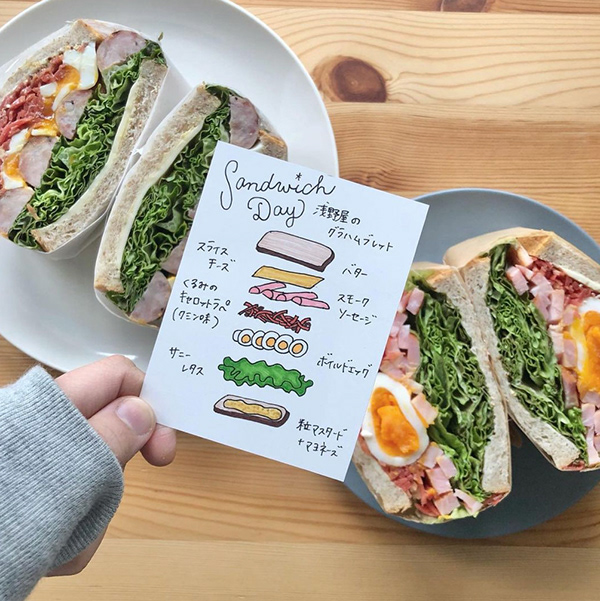 Sandwich
Day
浅野屋の
グラハムブレット
スライス
チーズ
バター
くるみの
キャロットラペ
(クミン味)
スモーク
ソーセージ
サニー
レタス
ボイルドエッグ
粒マスタード
+マヨネーズ